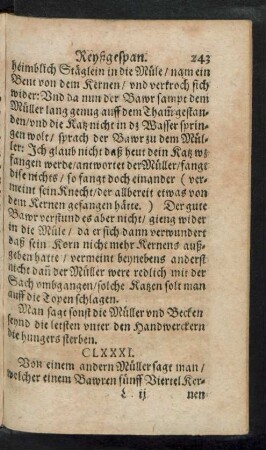 Reyßgespan. 243
heimblich Stäglein in die Müle / nam ein
Vent von dem Kernen / vnd verkroch sich
wider: Vnd da nun der Bawr sampt dem
Müller lang genug auff dem Tham̃ gestan-
den / vnd die Katz nicht in dz Wasser sprin-
gen wolt / sprach der Bawr zu dem Mül-
ler: Ich glaub nicht daß heut dein Katz wz
fangen werde / antwortet der Müller / fangt
dise nichts / so fangt doch ein ander (ver-
meint sein Knecht / der allbereit etwas von
dem Kernen gefangen hätte.) Der gute
Bawr verstund es aber nicht / gieng wider
in die Müle / da er sich dann verwundert
daß sein Korn nicht mehr Kernens auß-
geben hatte / vermeint beynebens anderst
nicht dañ der Müller were redlich mit der
Sach vmbgangen / solche Katzen solt man
auff die Topen schlagen.
Man sagt sonst die Müller vnd Becken
seynd die letsten vnter den Handwerckern
die hungers sterben.
CLXXXI.
Von einem andern Müller sagt man /
welcher einem Bawren fünff Viertel Ker-
L ij nen